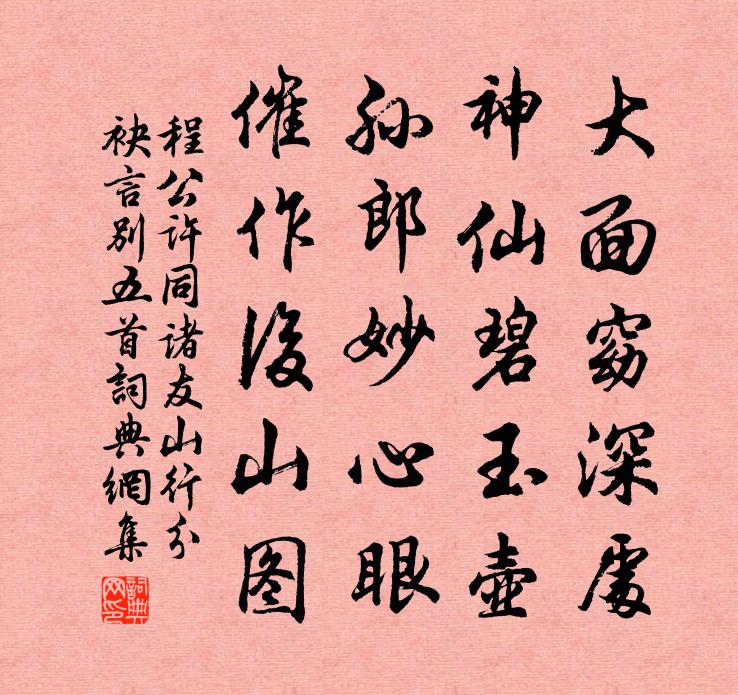 大面窈深處
神仙碧玉壺
孫郎妙心眼
催作後山图
程公許同诸友山行分
袂言别五首詞典網集
詞典
网印